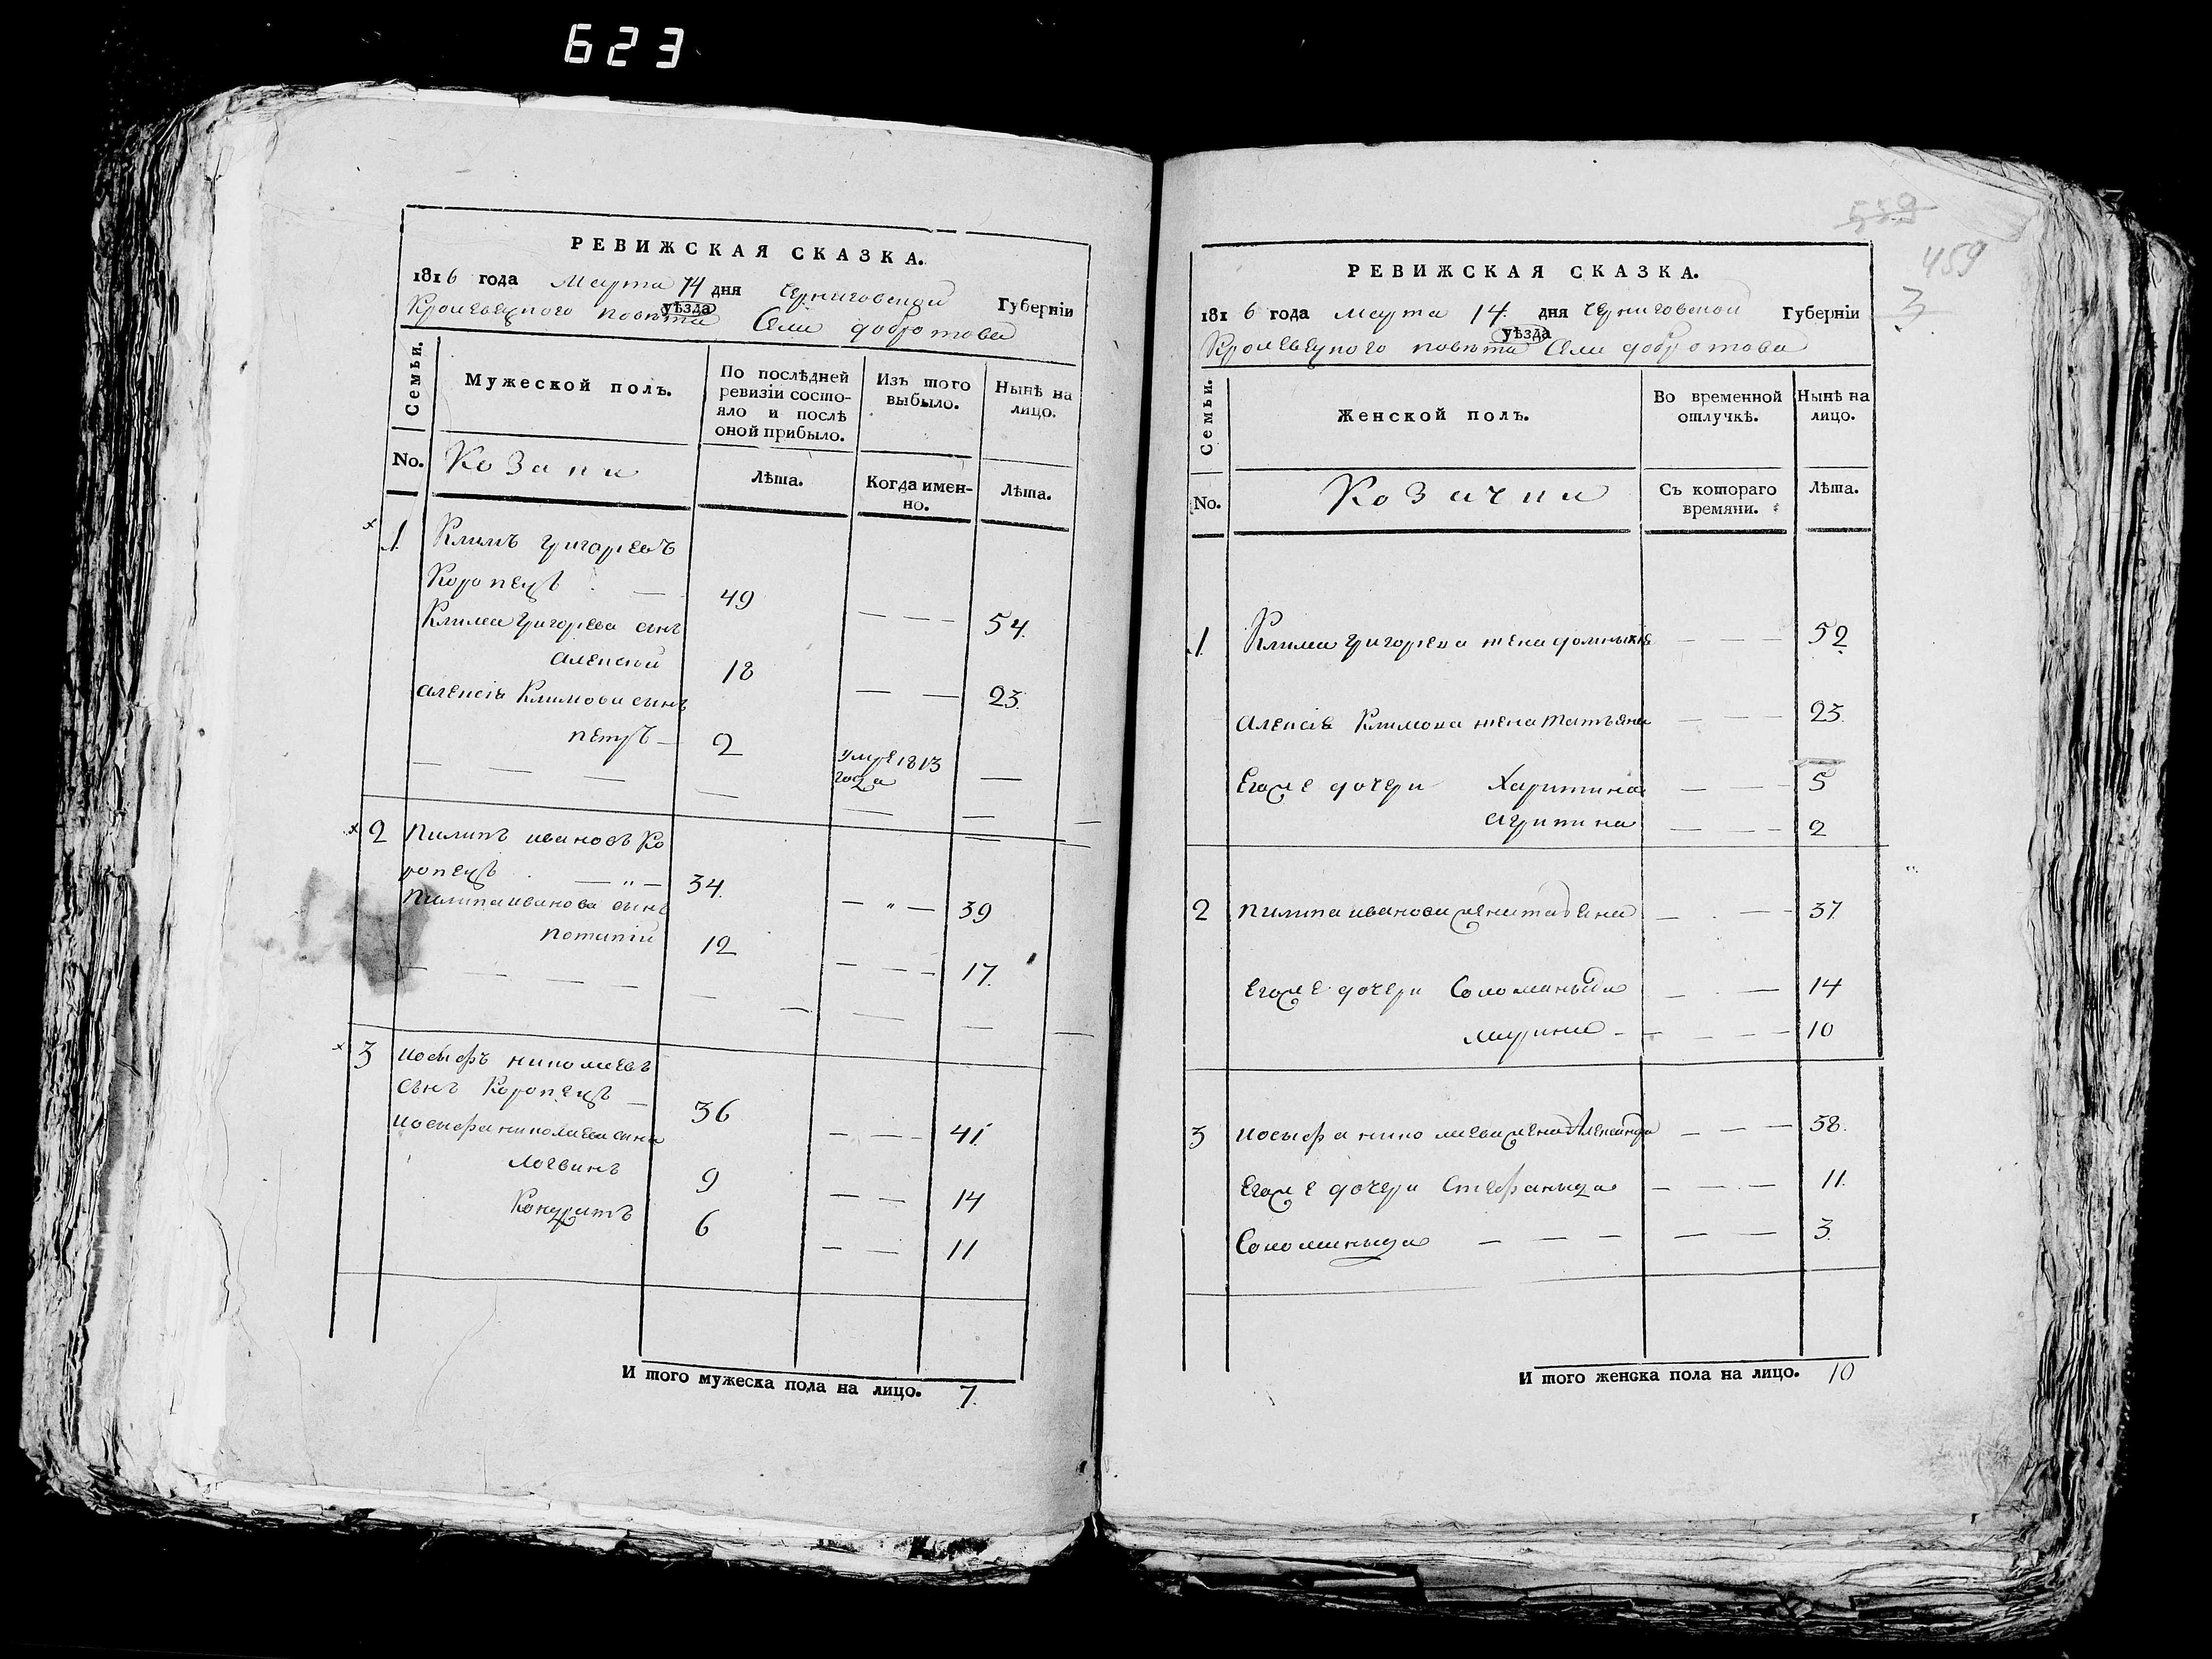 623
РЕВИЖСКАЯ СКАЗКА.
1816 года Марта 14 дня Черниговской Губерніи
Кролевецкого повѣта уѣзда Села добротова
Семьи.
Мужеской полъ.
По послѣдней ревизіи состояло и послѣ оной прибыло.
Изъ того выбыло.
Нынѣ на лицо.
No.
Козаки
Лѣта.
Когда именно.
Лѣта.
1 Климъ григорьевъ
Коропецъ — 49 — — — 54.
Клима григорьева сынъ
алексѣй 18 — — 23.
алексія Климова сынъ
петръ — 2 умре 1813 года —
2 пилипъ ивановъ Ко
ропецъ — „ — 34. — „ — 39
пилипа иванова сынъ
потапій 12 — — — 17.
3 иосифъ николаевъ
сынъ Коропецъ — 36 — — — 41.
иосифа николаева сини
логвинъ 9 — — — 14
Кондратъ 6 — — 11
И того мужеска пола на лицо. 7.
539
459
3
РЕВИЖСКАЯ СКАЗКА.
1816 года марта 14. дня Черниговской Губерніи
Кролевецкого повѣта уѣзда Села добротова
Семьи.
Женской полъ.
Во временной отлучкѣ.
Нынѣ на лицо.
No.
Козачки
Съ котораго времяни.
Лѣта.
1 Клима григорьева жена домникія — — — 52
алексія Климова жена татьяна — — — 23.
Егоже дочери Харитина — — — 5
агрипина — — — 2
2 пилипа иванова жена татьяна — — — 37.
Егоже дочери Соломанида — — 14
марина — — — — 10
3 иосифа николаева жена Александра — — — 38.
Егоже дочери Стефанида — — — 11.
Соломанида — — — — — 3.
И того женска пола на лицо. 10